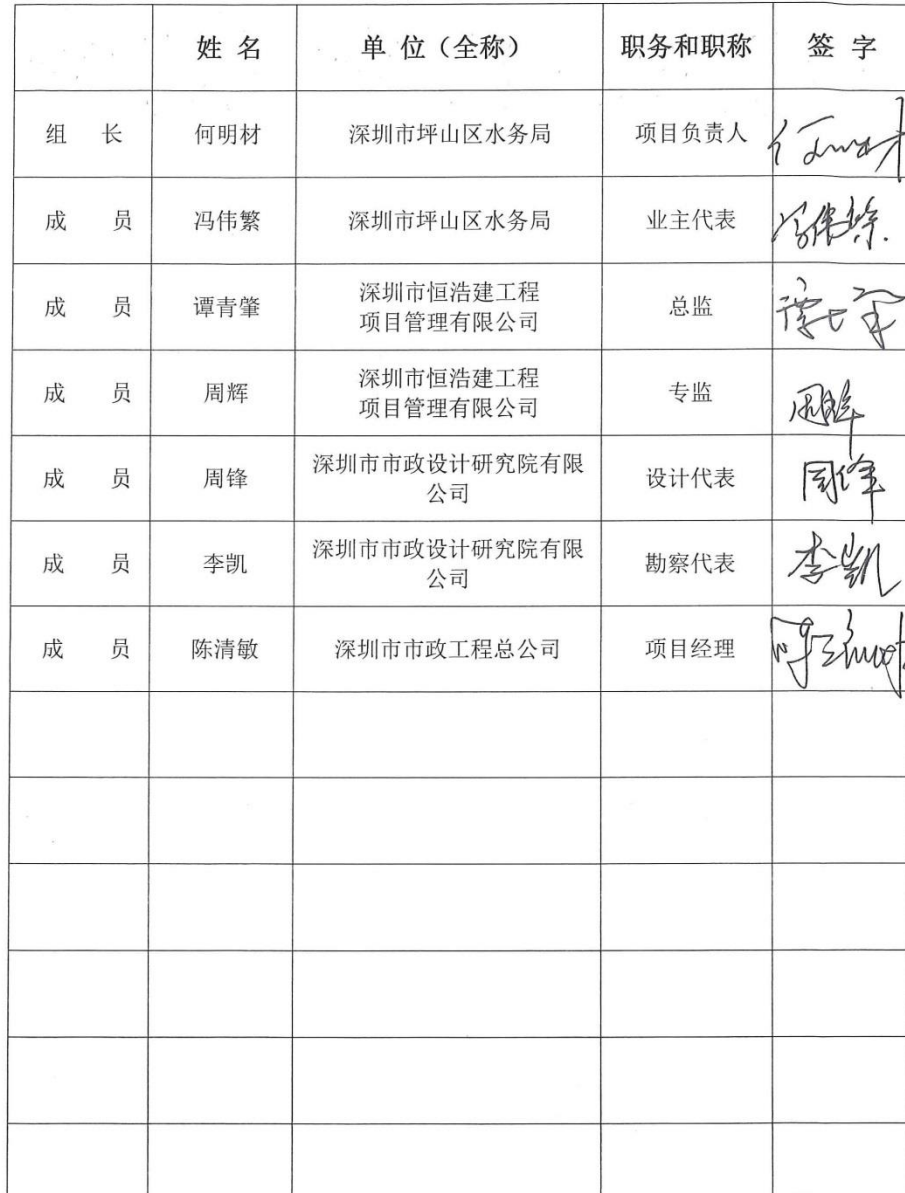 姓 名 单 位（全称） 职务和职称 签 字
组 长 何明材 深圳市坪山区水务局 项目负责人
成 员 冯伟繁 深圳市坪山区水务局 业主代表 冯伟繁
成 员 谭青肇 深圳市恒浩建工程 总监
项目管理有限公司
成 员 周辉 深圳市恒浩建工程 专监 周辉
项目管理有限公司
成 员 周锋 深圳市市政设计研究院有限 设计代表 周锋
公司
成 员 李凯 深圳市市政设计研究院有限 勘察代表 李凯
公司
成 员 陈清敏 深圳市市政工程总公司 项目经理